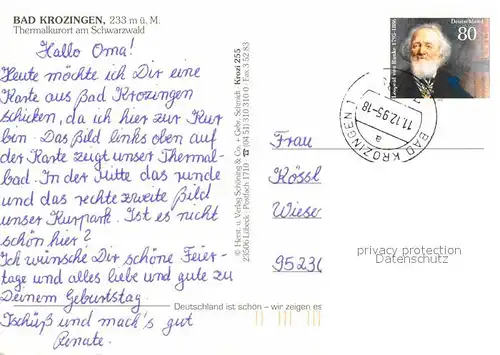 BAD KROZINGEN, 233 m ü. M.
Thermalkurort am Schwarzwald
Hallo Oma!
Heute möchte ich Dir eine
Karte aus Bad Krozingen
schicken, da ich hier zur Kur
bin. Das Bild links oben auf
der Karte zeigt unser Thermal-
bad. In der Mitte das runde
und das rechte zweite Bild
unser Kurpark. Ist es nicht
schön hier?
Ich wünsche Dir schöne Feier-
tage und alles liebe und gute zu
Deinem Geburtstag.
Tschüß und mach's gut
Renate.
Deutschland ist schön – wir zeigen es
© Herst. u. Verlag Schöning & Co. + Gebr. Schmidt
23506 Lübeck · Postfach 1710 ☎ (04 51) 310 310-0
Krozi 255
Fax 3 52 83
Leopold von Ranke 1795-1886
Deutschland
80
BAD KROZINGEN 1
11.12.95-18
a
Frau
Rössl
Wiese
9523
privacy protection
Datenschutz